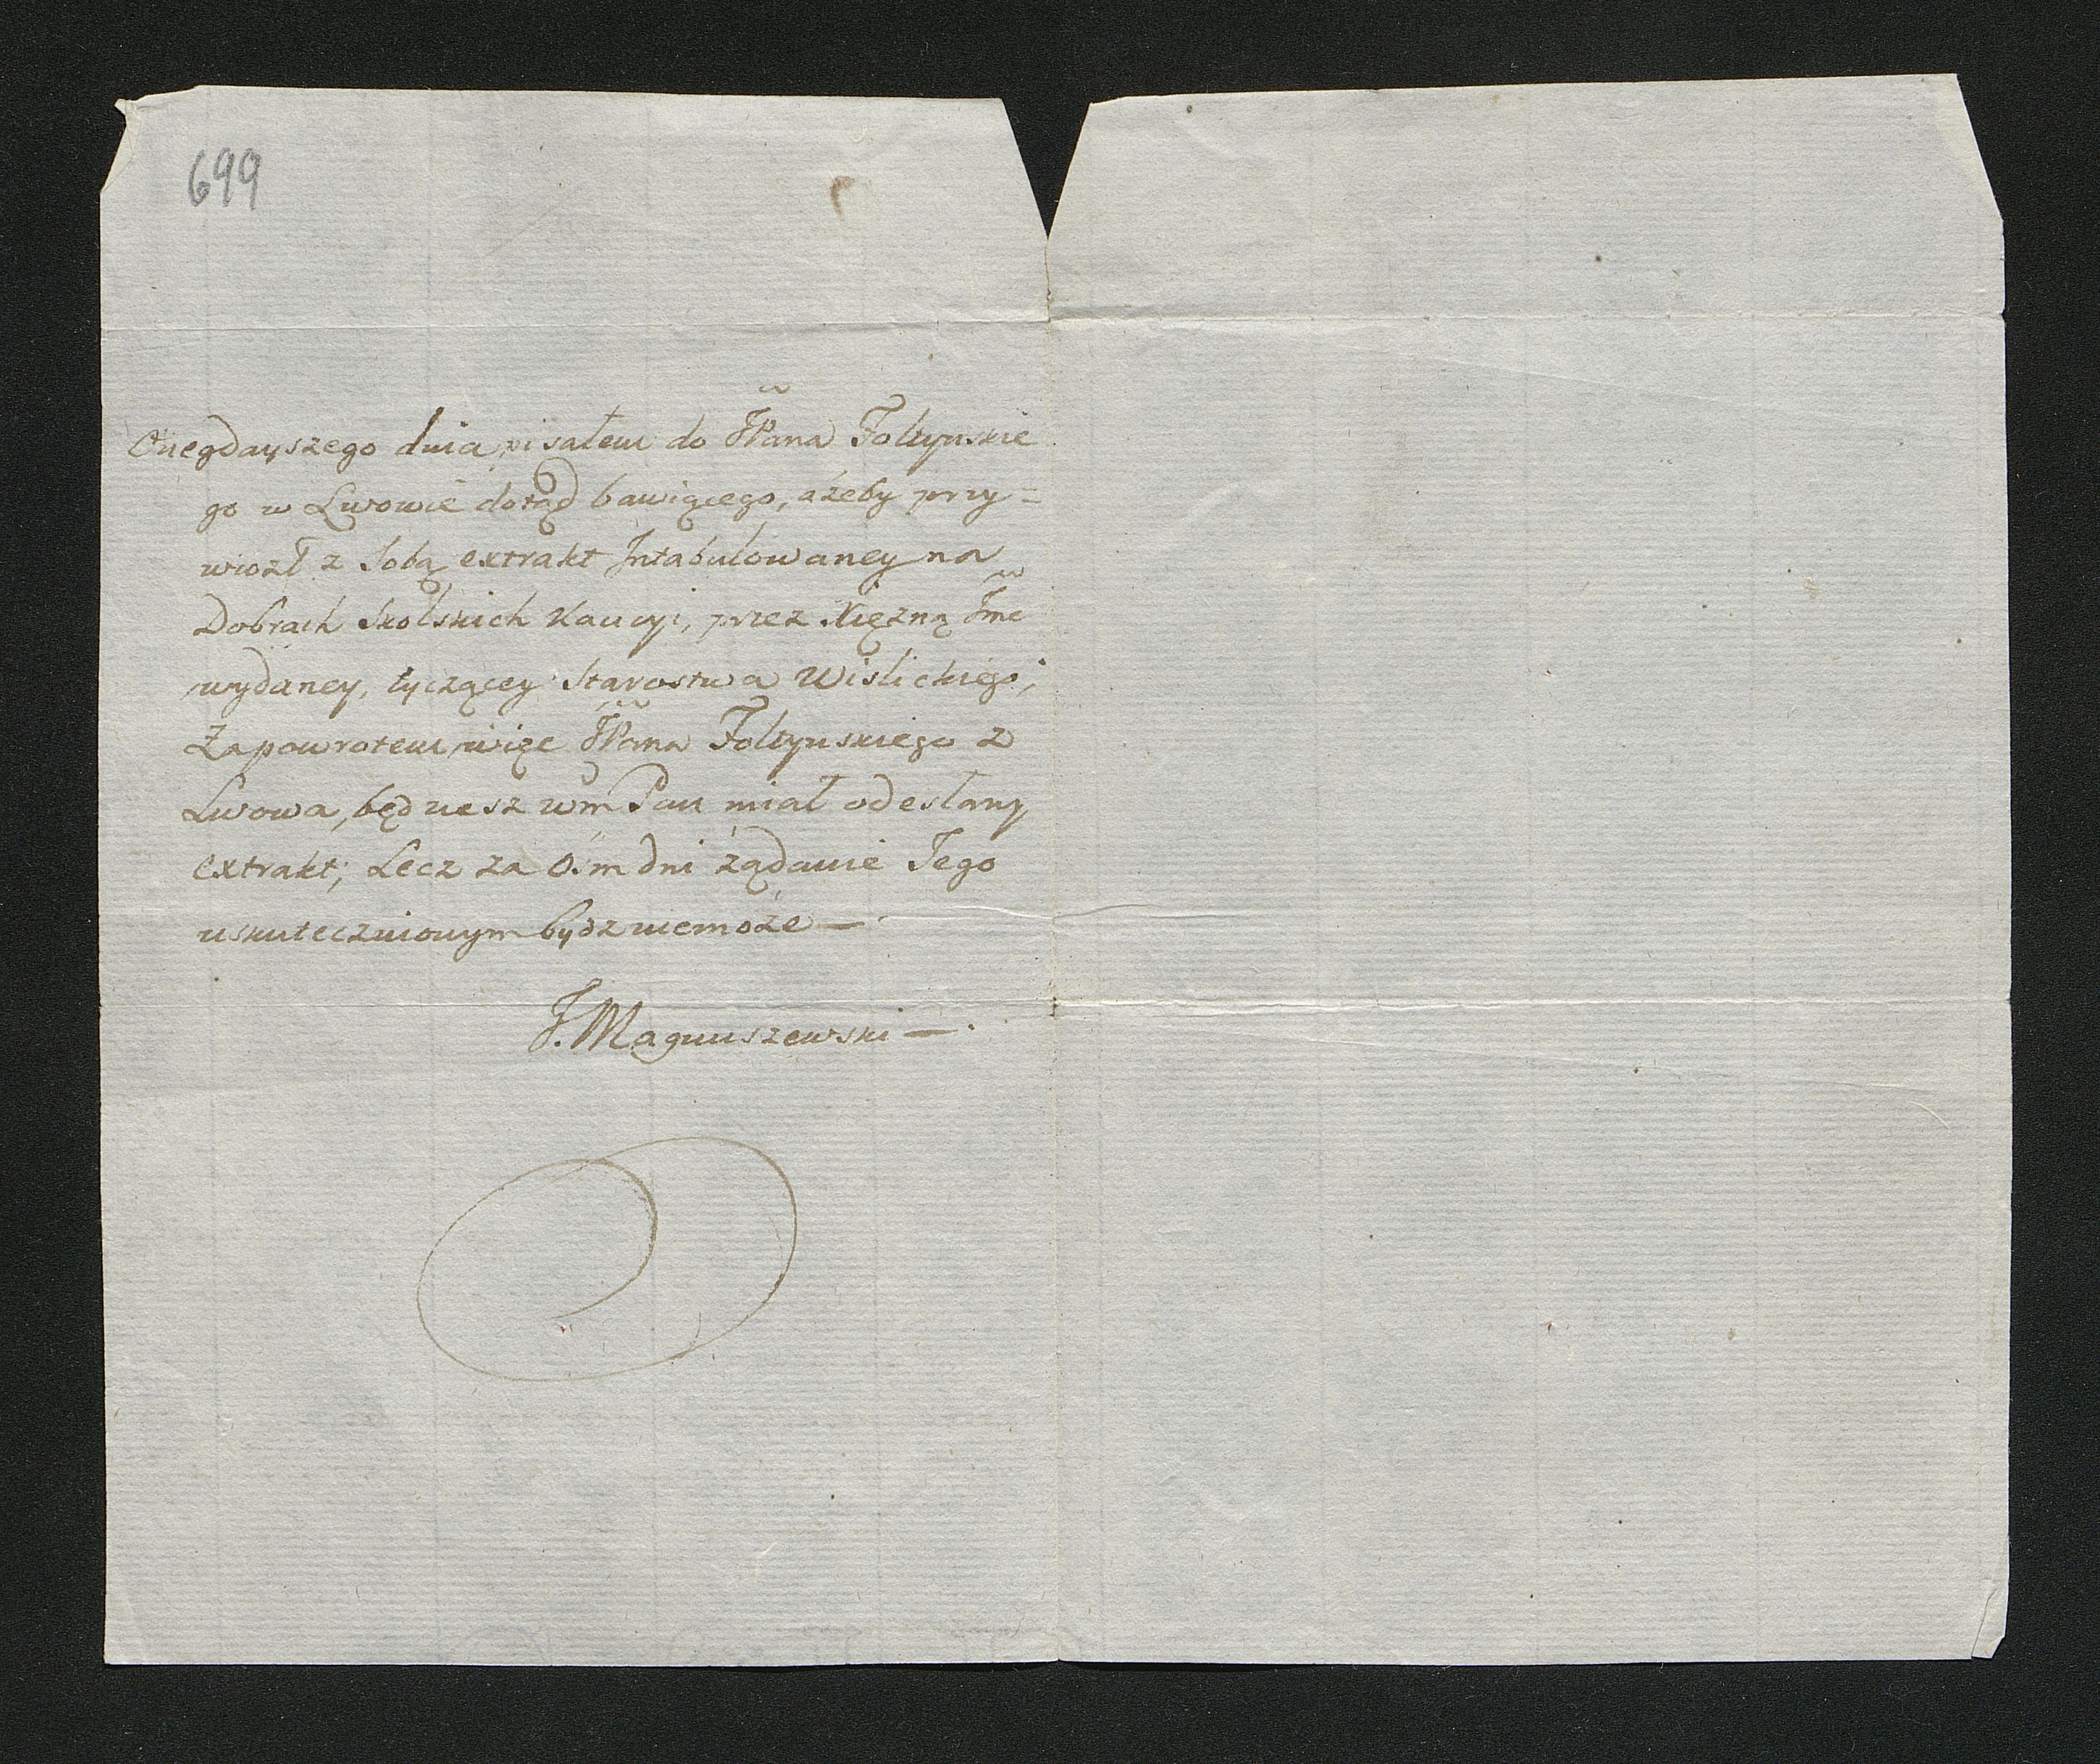 699
Onegdayszego dnia pisałem do JPana Foltynskie
go w Lwowie dotąd bawiącego, ażeby przy=
wiozł z Sobą extrakt Intabulowaney na
Dobrach Skolskich Kaucyi, przez Xiężną Jmć
wydaney, tyczącey Starostwa Wislickiego,
Za powrotem więc JPana Foltynskiego z
Lwowa, będziesz WmPan miał odesłany
extrakt; Lecz za Ośm dni żądanie Jego
uskutecznionym bydz niemoże —
J. Magnuszewski —